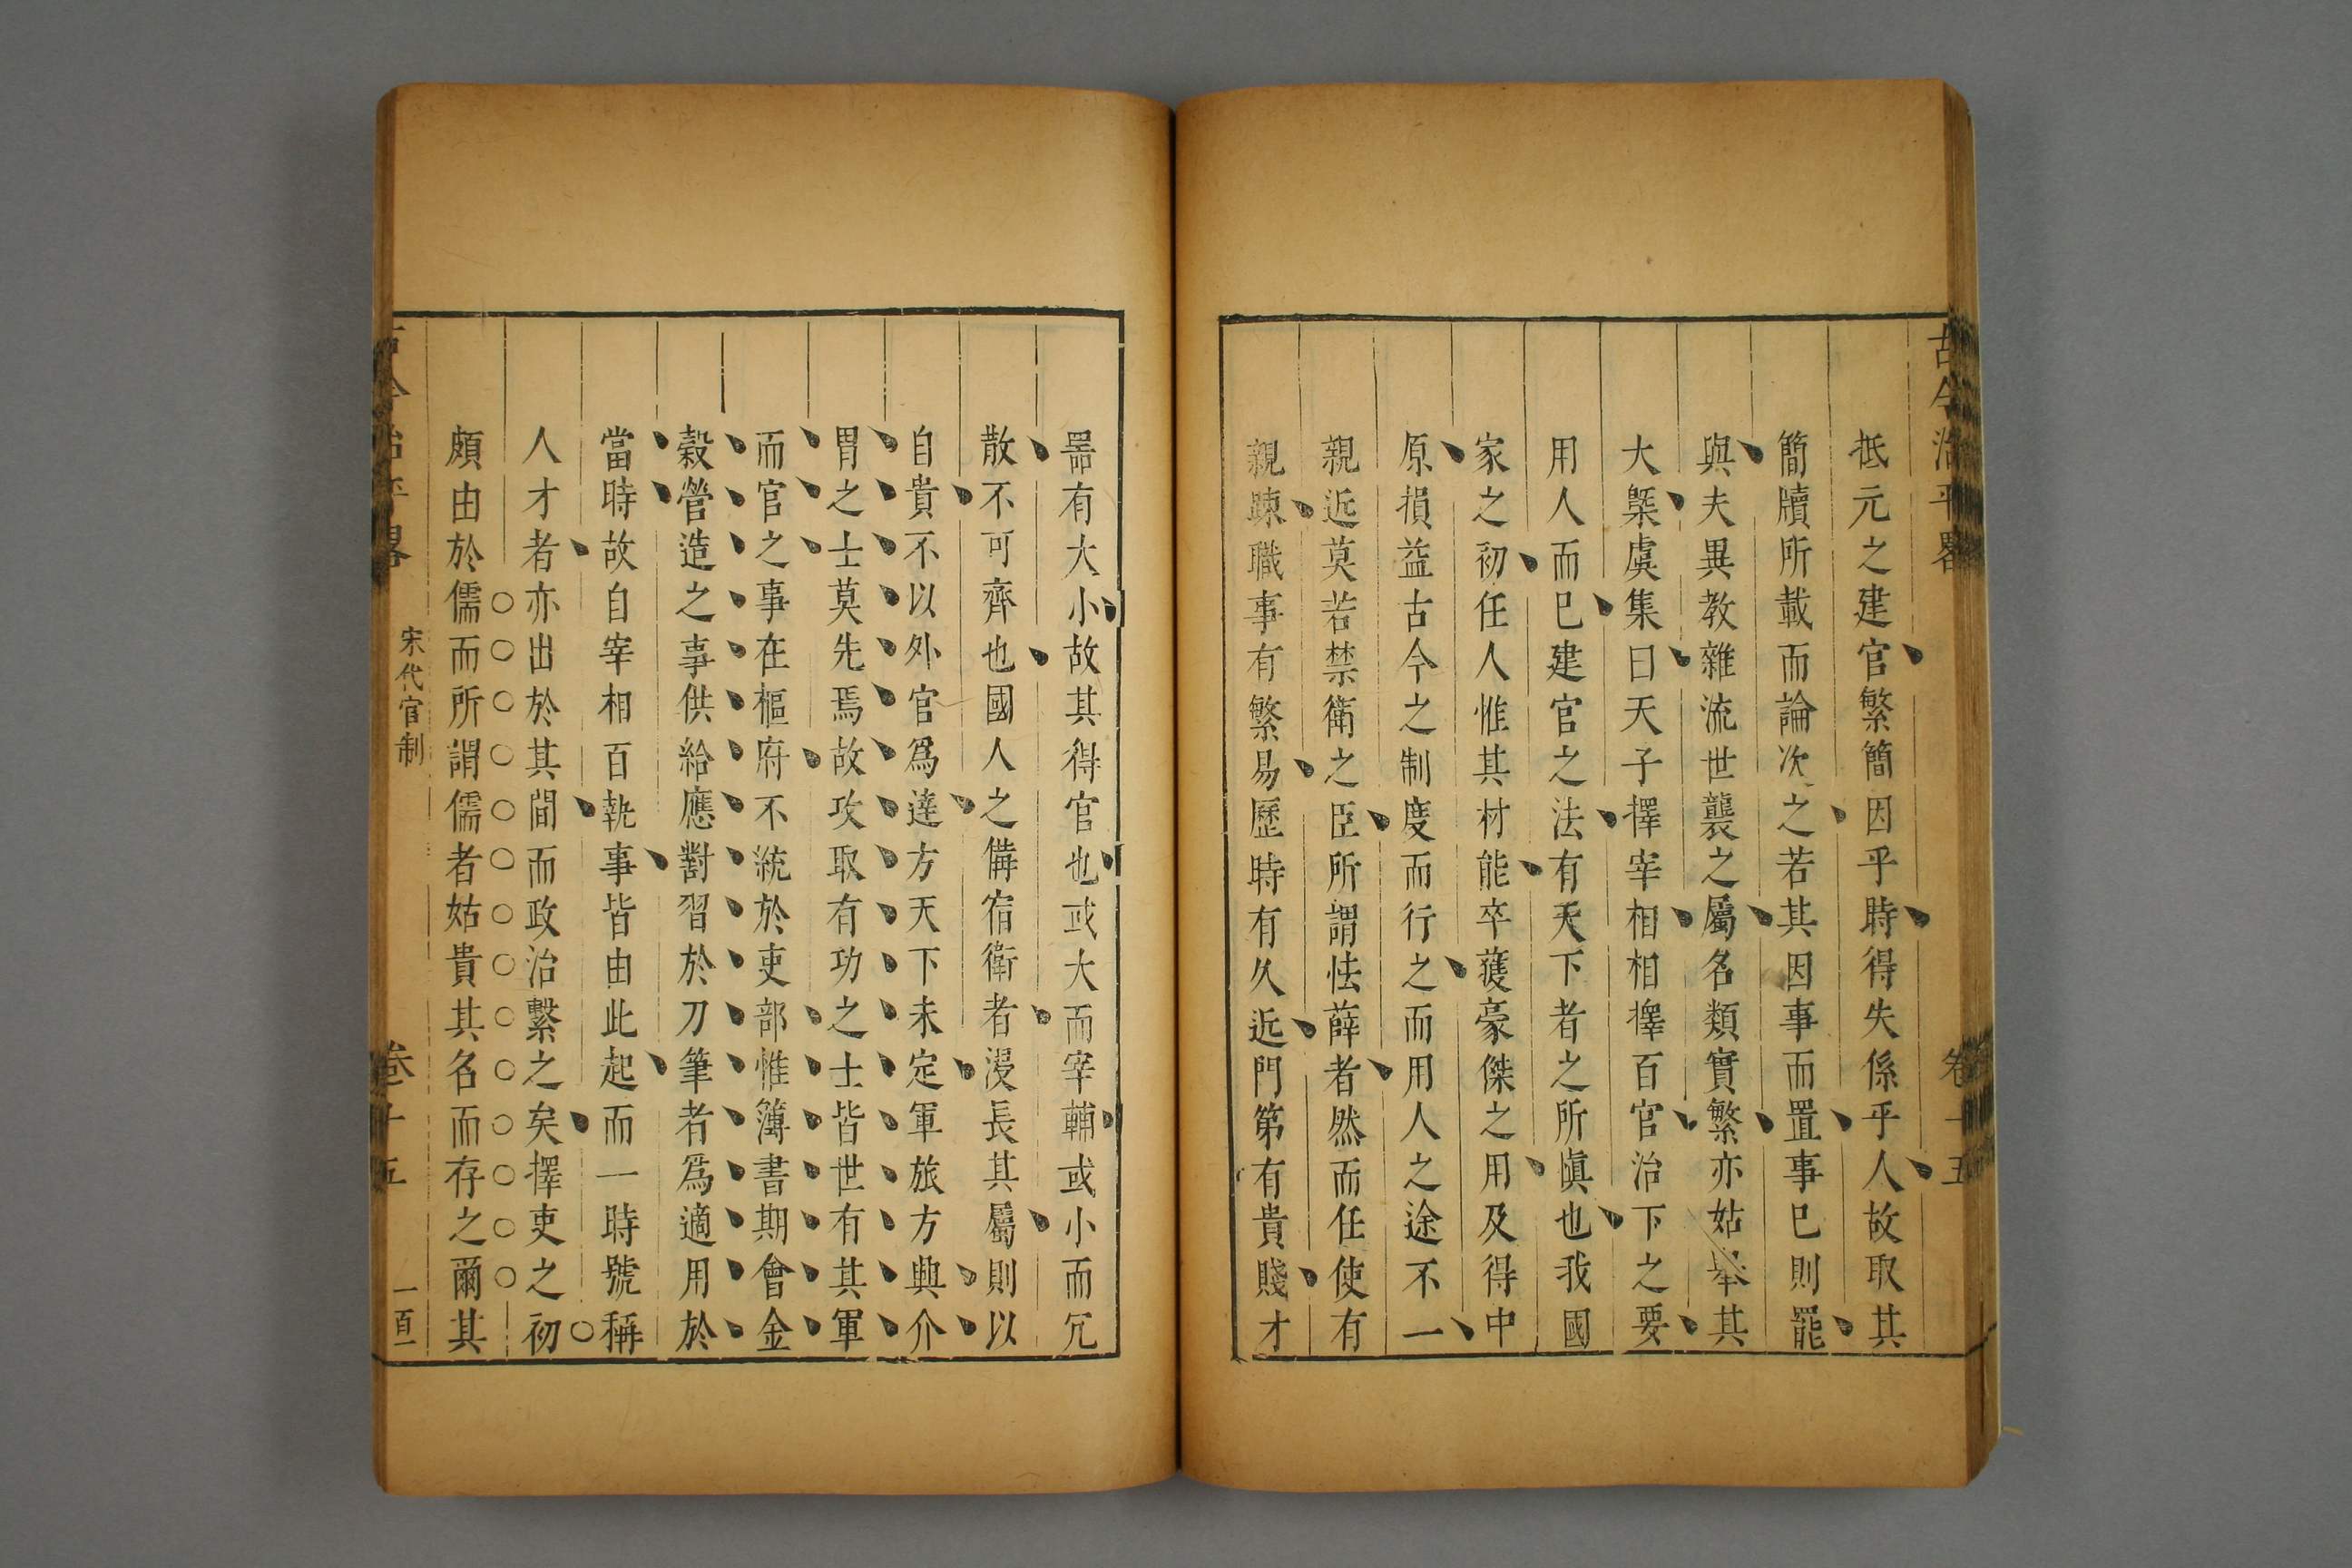 古今治平畧
卷十五
抵元之建官繁簡因乎時得失係乎人故取其
簡牘所載而論次之若其因事而置事巳則罷
與夫異教雜流世襲之屬名類實繁亦姑舉其
大槩虞集曰天子擇宰相相擇百官治下之要
用人而巳建官之法有天下者之所愼也我國
家之初任人惟其材能卒獲豪傑之用及得中
原損益古今之制度而行之而用人之途不一
親近莫若禁衛之臣所謂怯薛者然而任使有
親踈職事有繁易歷時有久近門第有貴賤才
噐有大小故其得官也或大而宰輔或小而冗
散不可齊也國人之備宿衛者浸長其屬則以
自貴不以外官爲達方天下未定軍旅方興介
胃之士莫先焉故攻取有功之士皆世有其軍
而官之事在樞府不統於吏部惟簿書期會金
穀營造之事供給應對習於刀筆者爲適用於
當時故自宰相百執事皆由此起而一時號稱
人才者亦出於其間而政治繫之矣擇吏之初
頗由於儒而所謂儒者姑貴其名而存之爾其
古今治平畧
宋代官制
卷十五
一百一